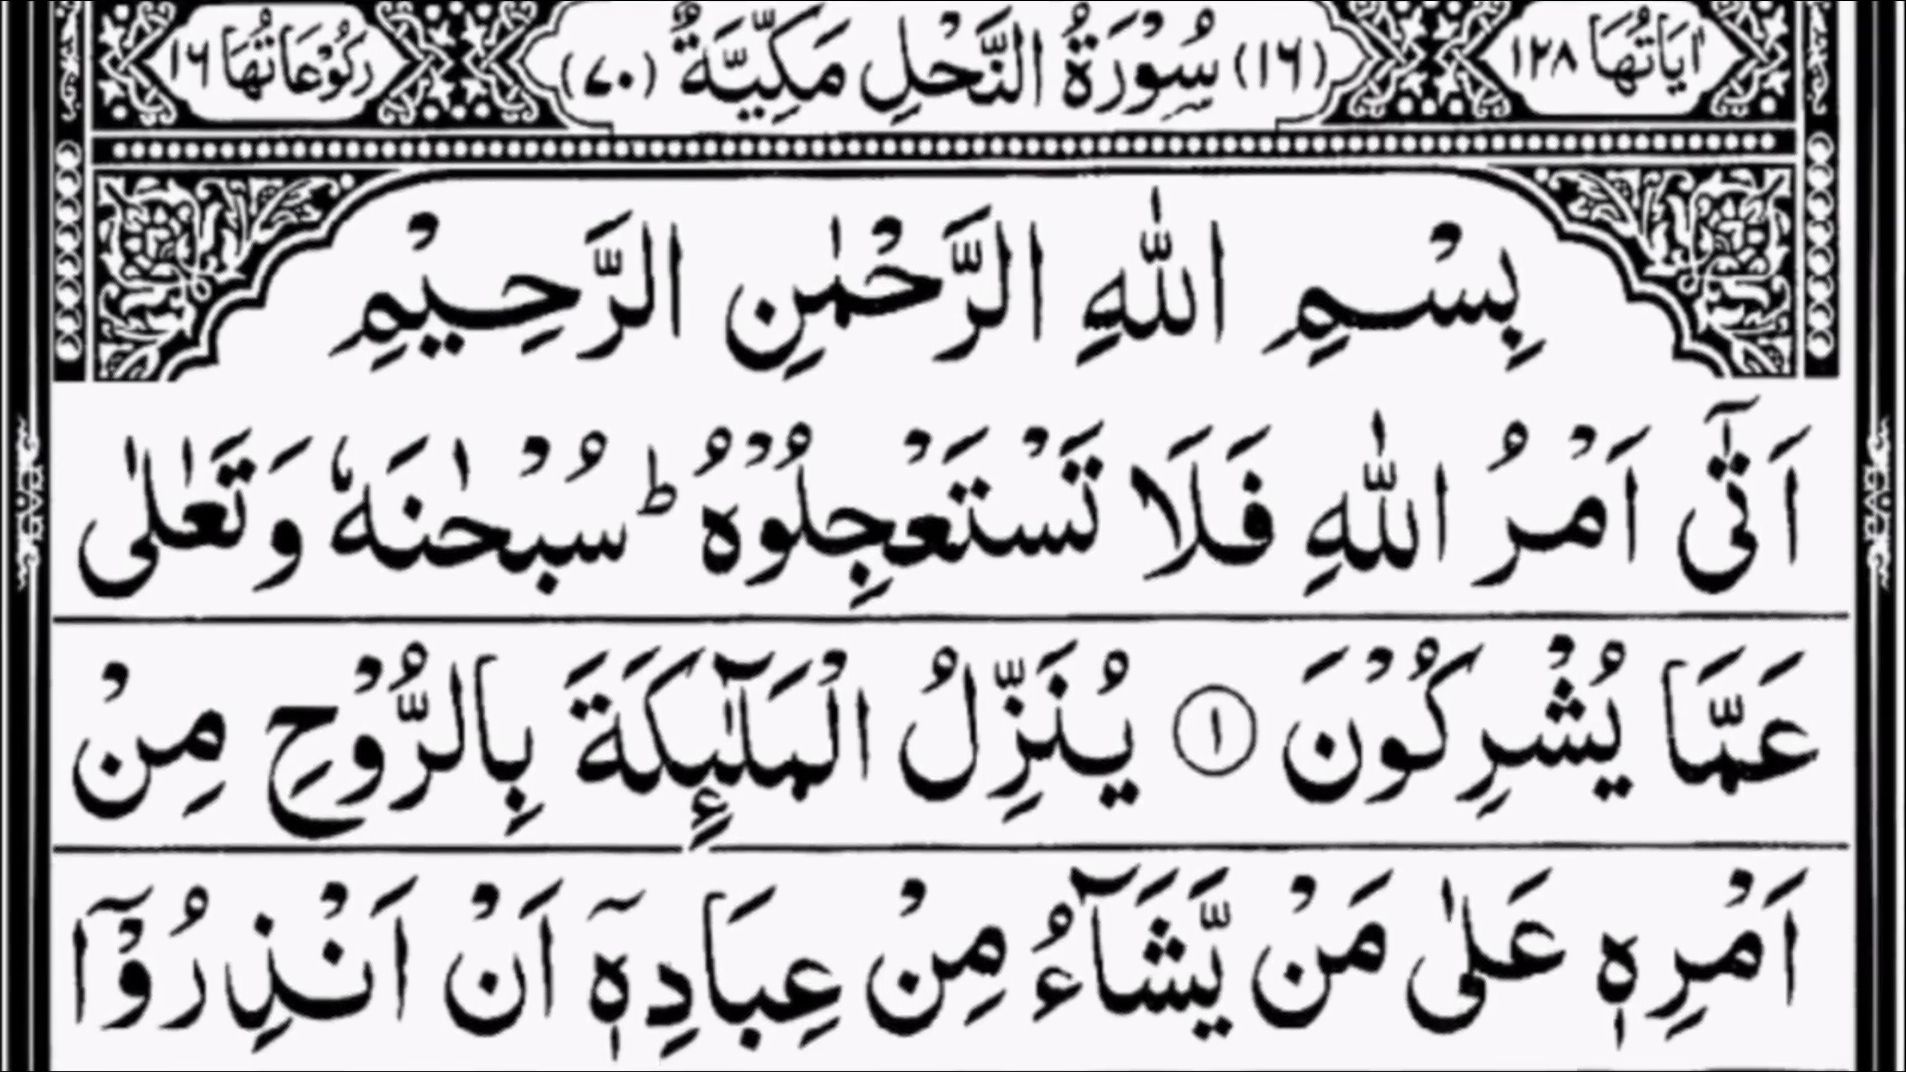 اٰيَاتُهَا ١٢٨ (١٦) سُوْرَةُ النَّحْلِ مَكِّيَّةٌ (٧٠) رَكُوْعَاتُهَا ١٦
بِسْمِ اللّٰهِ الرَّحْمٰنِ الرَّحِيْمِ
اَتٰۤى اَمْرُ اللّٰهِ فَلَا تَسْتَعْجِلُوْهُ ؕ سُبْحٰنَهٗ وَتَعٰلٰى
عَمَّا يُشْرِكُوْنَ ١ يُنَزِّلُ الْمَلٰٓئِكَةَ بِالرُّوْحِ مِنْ
اَمْرِهٖ عَلٰى مَنْ يَّشَآءُ مِنْ عِبَادِهٖۤ اَنْ اَنْذِرُوْۤا